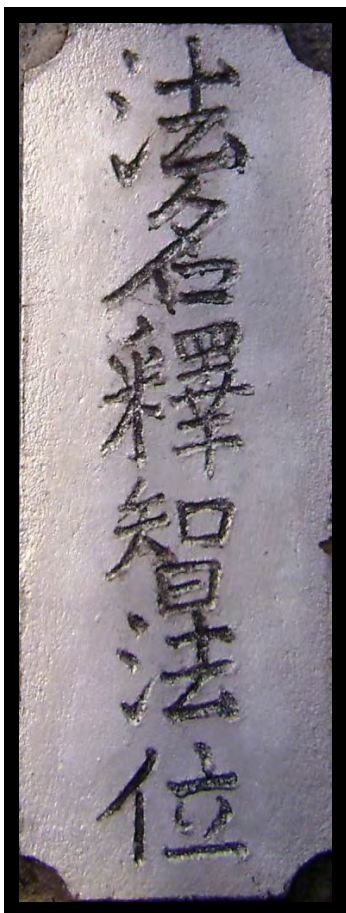 法名釋智法位